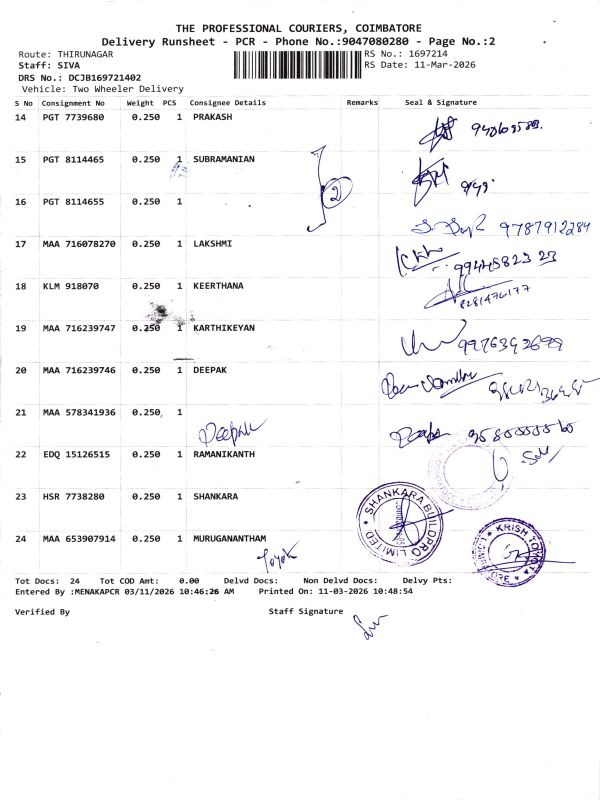 THE PROFESSIONAL COURIERS, COIMBATORE
Delivery Runsheet - PCR - Phone No.:9047080280 - Page No.:2
Route: THIRUNAGAR RS No.: 1697214
Staff: SIVA RS Date: 11-Mar-2026
DRS No.: DCJB169721402
Vehicle: Two Wheeler Delivery
S No Consignment No Weight PCS Consignee Details Remarks Seal & Signature
14 PGT 7739680 0.250 1 PRAKASH
15 PGT 8114465 0.250 1 SUBRAMANIAN
2
16 PGT 8114655 0.250 1
9787912284
17 MAA 716078270 0.250 1 LAKSHMI
9944582323
18 KLM 918070 0.250 1 KEERTHANA
8281476177
19 MAA 716239747 0.250 1 KARTHIKEYAN
20 MAA 716239746 0.250 1 DEEPAK
21 MAA 578341936 0.250 1
Deepak
22 EDQ 15126515 0.250 1 RAMANIKANTH
23 HSR 7738280 0.250 1 SHANKARA
SHANKARA BUILDPRO LIMITED
24 MAA 653907914 0.250 1 MURUGANANTHAM
KRISH TOYOTA
Toyota
Tot Docs: 24 Tot COD Amt: 0.00 Delvd Docs: Non Delvd Docs: Delvy Pts:
Entered By :MENAKAPCR 03/11/2026 10:46:26 AM Printed On: 11-03-2026 10:48:54
Verified By Staff Signature